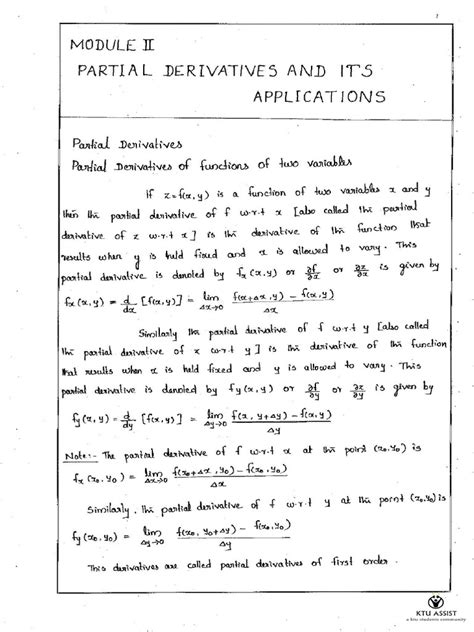 1
MODULE II
PARTIAL DERIVATIVES AND ITS
APPLICATIONS
Partial Derivatives
Partial Derivatives of functions of two variables
If z=f(x,y) is a function of two variables x and y
then the partial derivative of f w.r.t x [also called the partial
derivative of z w.r.t x] is the derivative of the function that
results when y is held fixed and x is allowed to vary. This
partial derivative is denoted by fx(x,y) or ∂f/∂x or ∂z/∂x is given by
fx(x,y) = d/dx [f(x,y)] = lim Δx→0 f(x+Δx,y) − f(x,y) / Δx
Similarly the partial derivative of f w.r.t y [also called
the partial derivative of z w.r.t y] is the derivative of the function
that results when x is held fixed and y is allowed to vary. This
partial derivative is denoted by fy(x,y) or ∂f/∂y or ∂z/∂y is given by
fy(x,y) = d/dy [f(x,y)] = lim Δy→0 f(x, y+Δy) − f(x,y) / Δy
Note:- The partial derivative of f w.r.t x at the point (x₀,y₀) is
fx(x₀,y₀) = lim Δx→0 f(x₀+Δx,y₀) − f(x₀,y₀) / Δx
Similarly, the partial derivative of f w.r.t y at the point (x₀,y₀) is
fy(x₀,y₀) = lim Δy→0 f(x₀, y₀+Δy) − f(x₀,y₀) / Δy
This derivatives are called partial derivatives of first order.
KTU ASSIST
a ktu students community